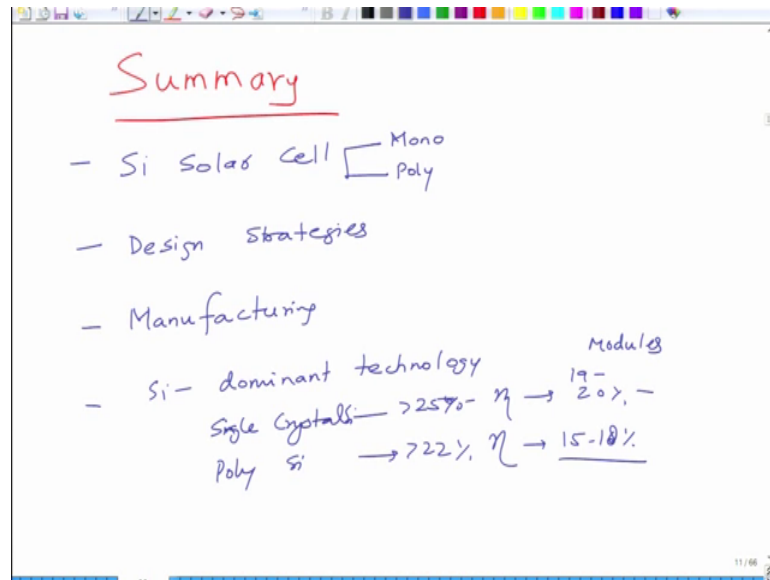 Summary
- Si Solar Cell Mono
Poly
- Design Strategies
- Manufacturing
- Si- dominant technology Modules
Single Crystalsi — >25% - η → 19-20% -
Poly si → >22% η → 15-18%
11/66